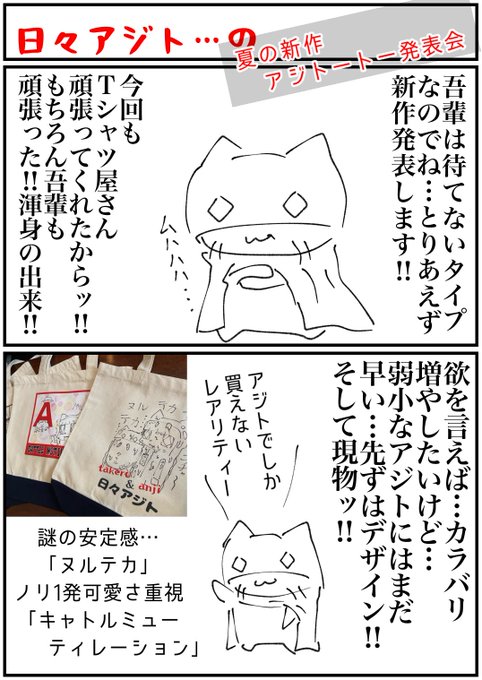 日々アジト…の
夏の新作
アジトートー発表会
吾輩は待てないタイプ
なのでね…とりあえず
新作発表します!!
ムハハハ...
今回も
Tシャツ屋さん
頑張ってくれたからッ!!
もちろん吾輩も
頑張った!!渾身の出来!!
欲を言えば…カラバリ
増やしたいけど…
弱小なアジトにはまだ
早い…先ずはデザイン!!
そして現物ッ!!
アジトでしか
買えない
レアリティー
A
ヌルテカ
takeru & anji
日々アジト
謎の安定感…
「ヌルテカ」
ノリ1発可愛さ重視
「キャトルミュー
ティレーション」